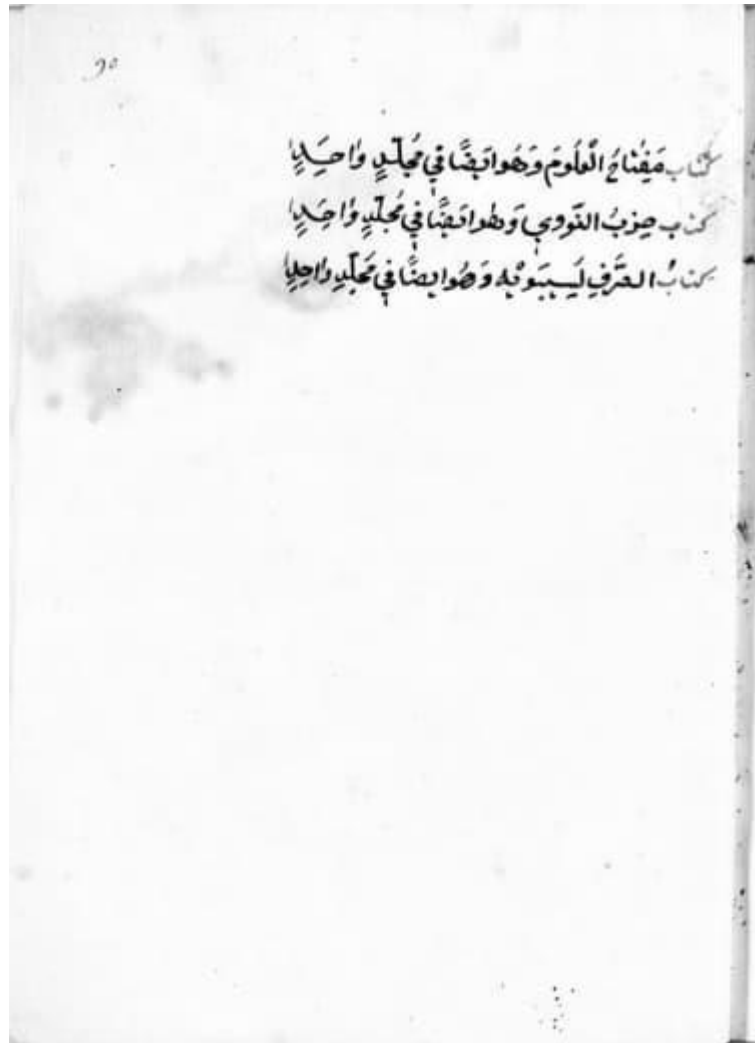 90
كتاب مَفِتَاحُ الْعُلُومَ وَهُوَ ايَضًا فِي مُجَلّدٍ وَاحِدٍ
كتاب حِزبُ النَّووِي وَهُوَ ايَضًا فِي مُجَلّدٍ وَاحِدٍ
كتابُ الصَّرَفِ لِسِيبَوَيْه وَهُوَ ايضًا فِي مَجَلّدٍ وَاحِدٍ